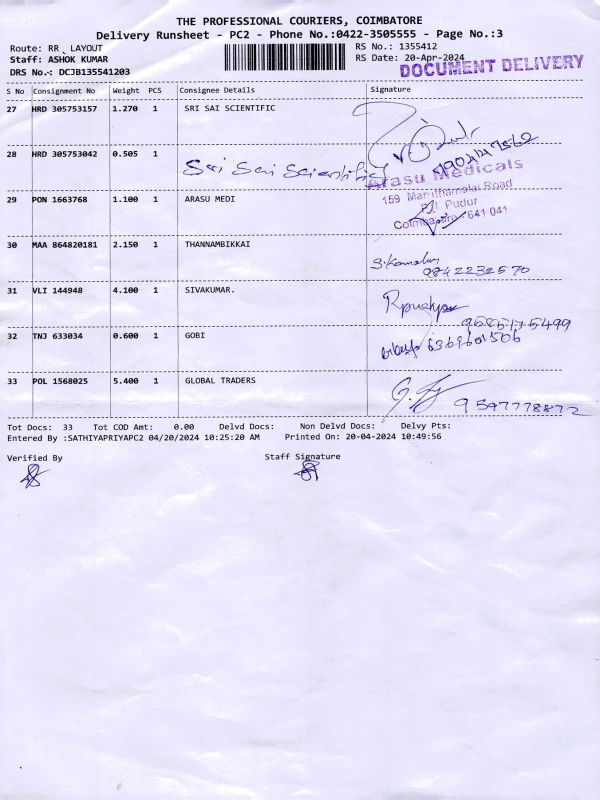 THE PROFESSIONAL COURIERS, COIMBATORE
Delivery Runsheet - PC2 - Phone No.:0422-3505555 - Page No.:3
Route: RR LAYOUT
RS No.: 1355412
Staff: ASHOK KUMAR
RS Date: 20-Apr-2024
DRS No.: DCJB135541203
DOCUMENT DELIVERY
S No Consignment No Weight PCS Consignee Details Signature
27 HRD 305753157 1.270 1 SRI SAI SCIENTIFIC
28 HRD 305753042 0.505 1
Sri Sai Scientific
Arasu Medicals
29 PON 1663768 1.100 1 ARASU MEDI
159 Maruthamalai Road
P.N. Pudur
Coimbatore - 641 041
30 MAA 864820181 2.150 1 THANNAMBIKKAI
S. Kamalam
9842232570
31 VLI 144948 4.100 1 SIVAKUMAR.
9585175499
32 TNJ 633034 0.600 1 GOBI
6369601506
33 POL 1568025 5.400 1 GLOBAL TRADERS
9597778872
Tot Docs: 33 Tot COD Amt: 0.00 Delvd Docs: Non Delvd Docs: Delvy Pts:
Entered By :SATHIYAPRIYAPC2 04/20/2024 10:25:20 AM Printed On: 20-04-2024 10:49:56
Verified By Staff Signature